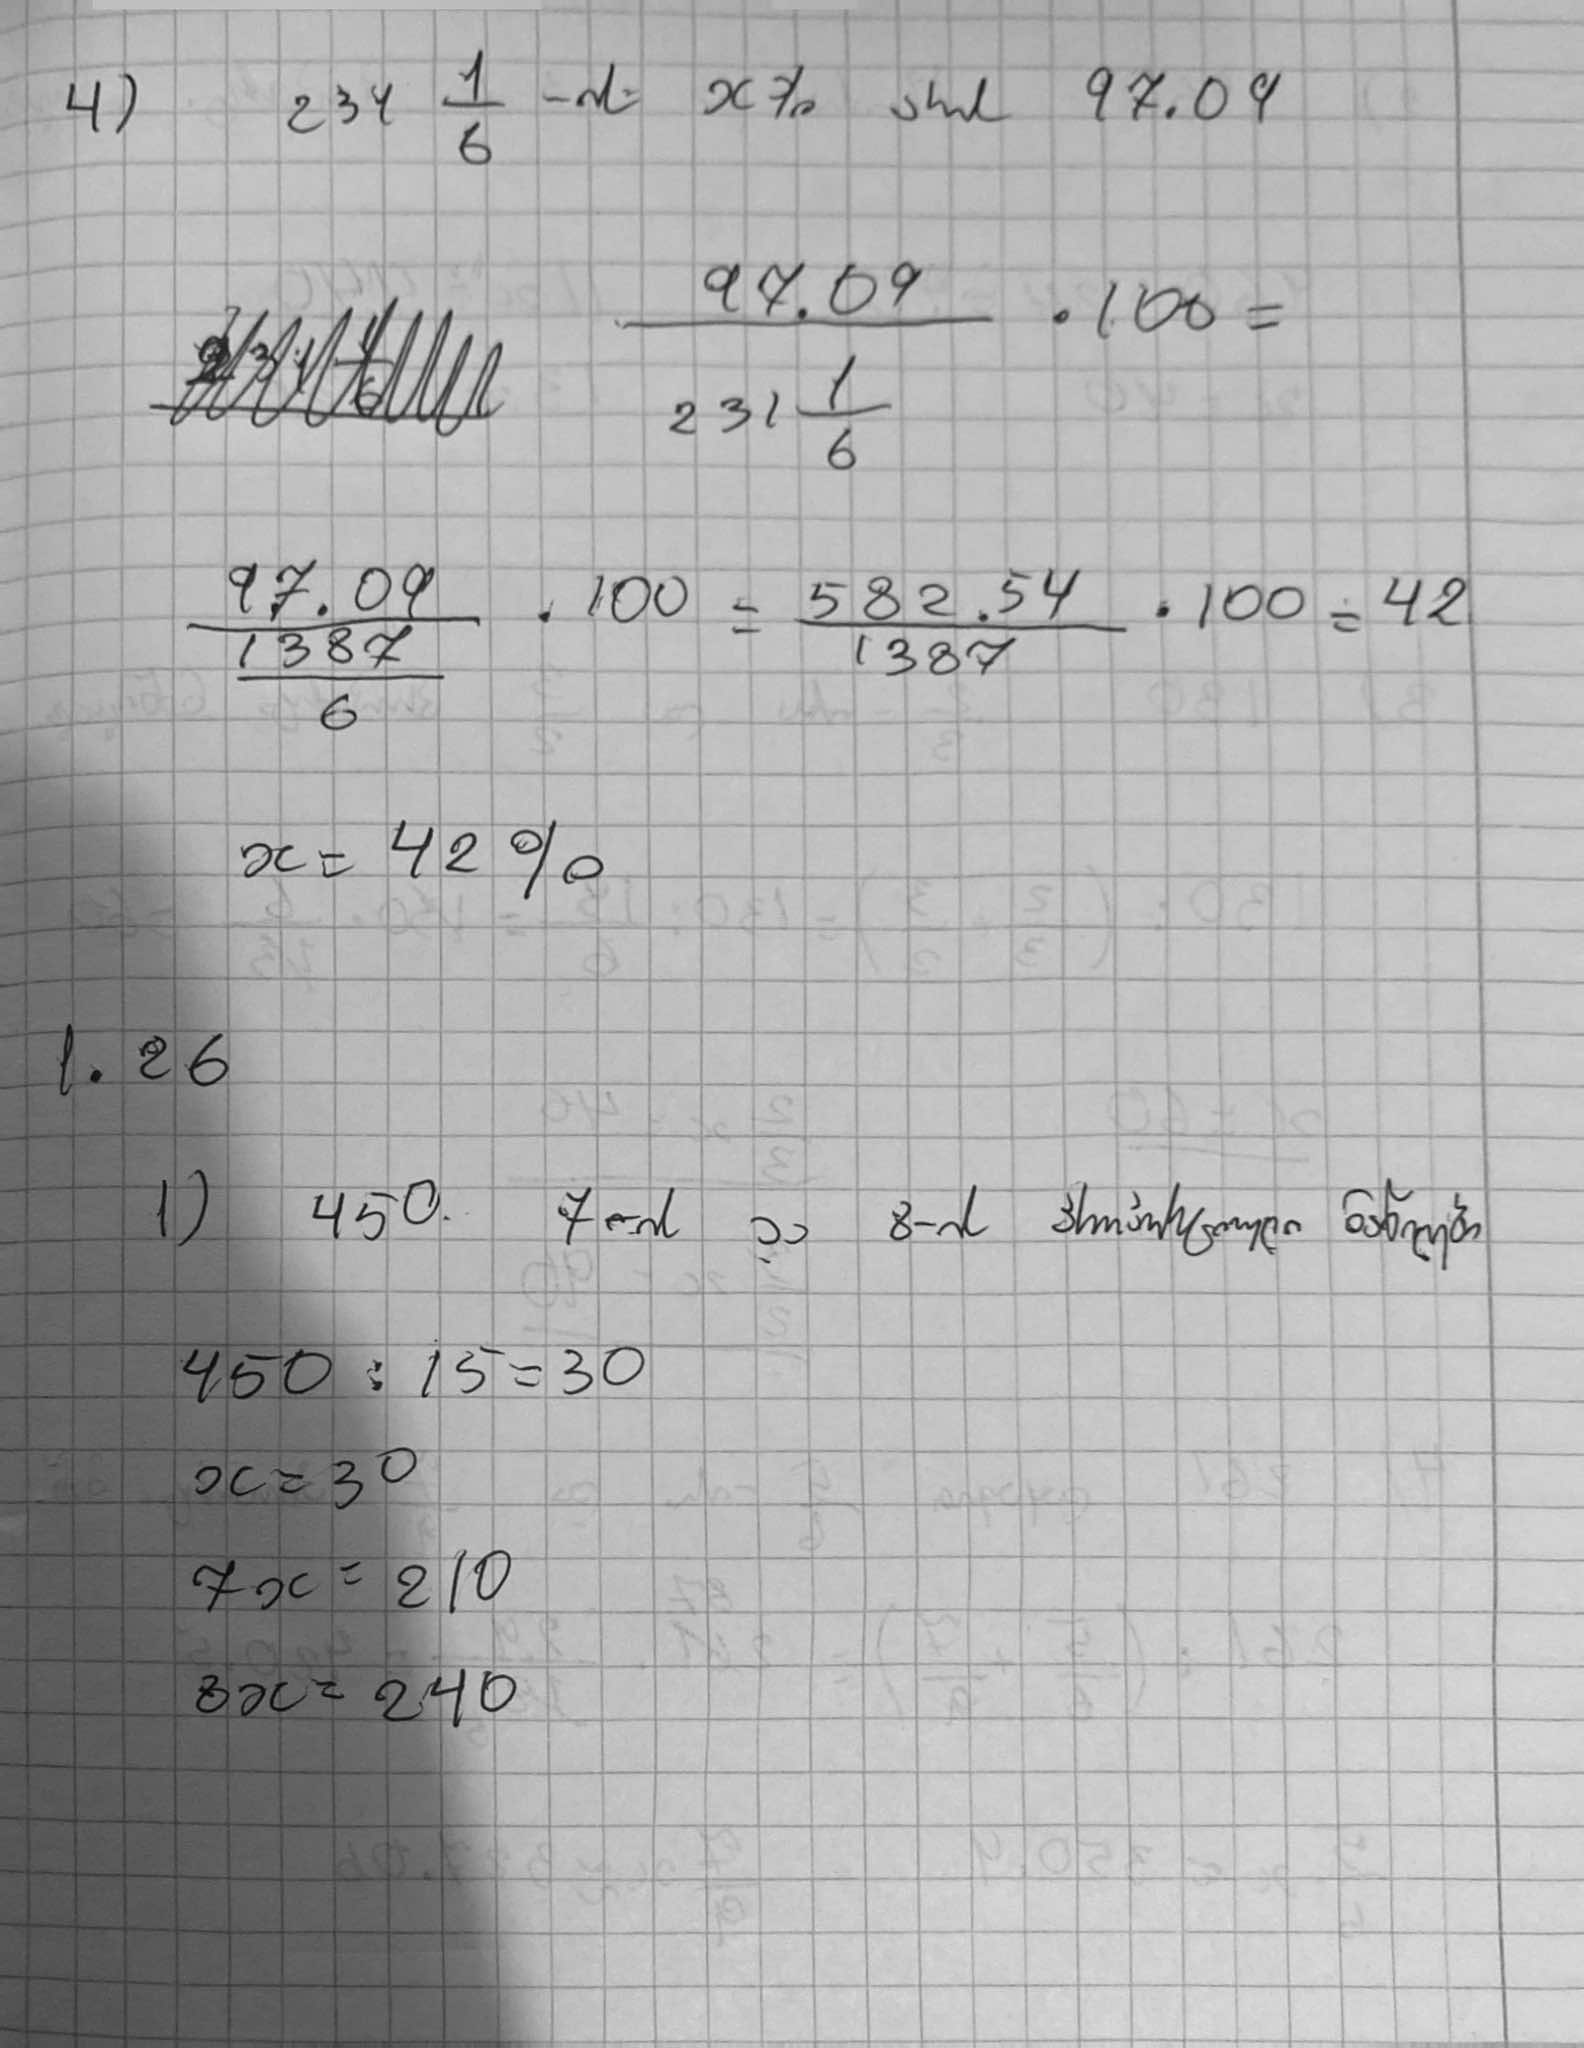 4) 231 1/6 -ის x% არის 97.09
97.09 / 231 1/6 · 100 =
97.09 / (1387/6) · 100 = 582.54/1387 · 100 = 42
x = 42 %
1.26
1) 450. 7-ის და 8-ის პროპორციულ ნაწილებად
450 : 15 = 30
x = 30
7x = 210
8x = 240